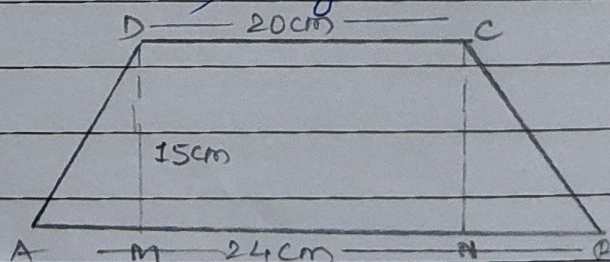 D 20cm C
15cm
A M 24cm N B